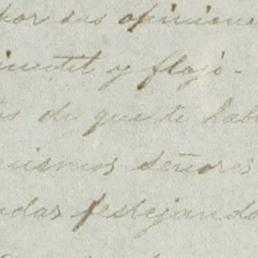 por sus opinione
y flojo.
de que te hab
mismos señores
das festejando